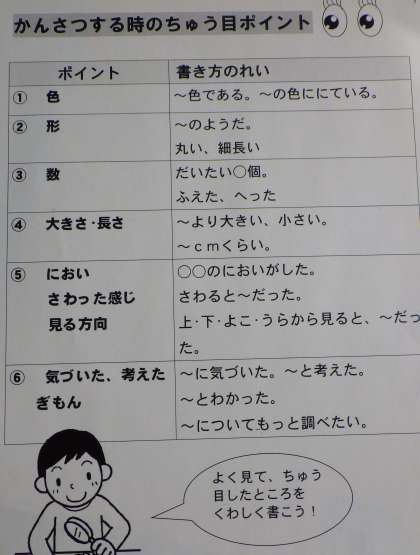 かんさつする時のちゅう目ポイント
ポイント 書き方のれい
① 色 ～色である。～の色ににている。
② 形 ～のようだ。
丸い、細長い
③ 数 だいたい○個。
ふえた、へった
④ 大きさ・長さ ～より大きい、小さい。
～ｃｍくらい。
⑤ におい ○○のにおいがした。
さわった感じ さわると～だった。
見る方向 上・下・よこ・うらから見ると、～だっ
た。
⑥ 気づいた、考えた ～に気づいた。～と考えた。
ぎもん ～とわかった。
～についてもっと調べたい。
よく見て、ちゅう
目したところを
くわしく書こう！